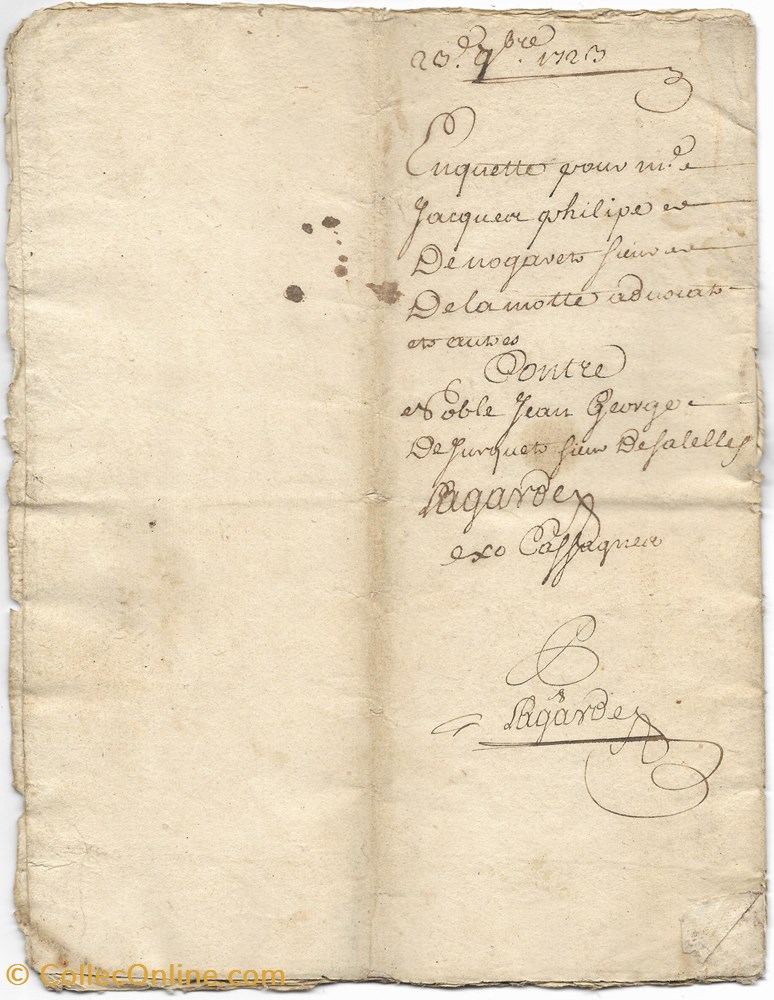 23e 9bre 1723
Enquette pour me
Jacques philipe
Denogaret sieur
Delamotte advocat
et autres
Contre
Noble Jean George
De Jurquet sieur Desalelles
Lagarde
exo Cassagnes
Lagarde
© CollecOnline.com